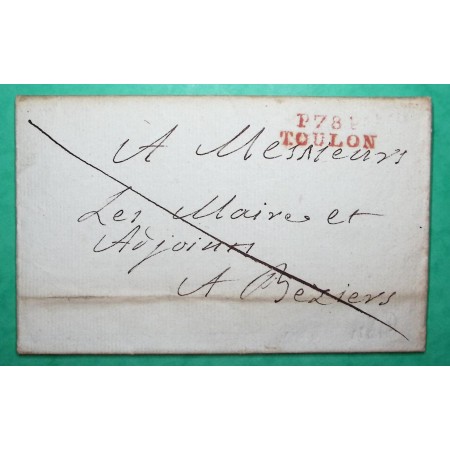 P.78.P
TOULON
A Messieurs
Les Maire et
Adjoints
A Beziers